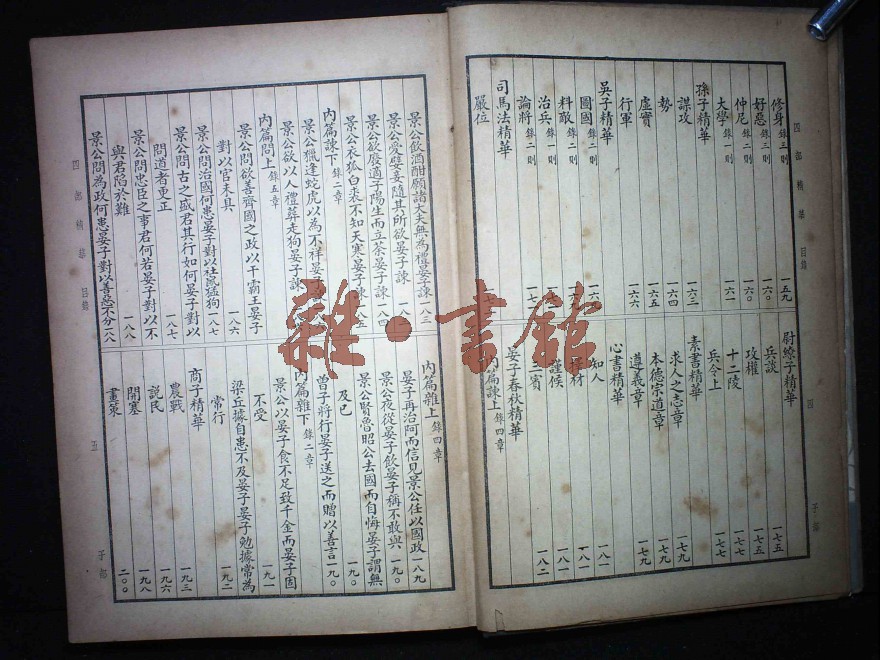 四部精華 目錄
四
子部
修身 錄三則 一五九
好惡 錄二則 一六〇
仲尼 錄一則 一六〇
大學 錄一則 一六一
孫子精華
謀攻 一六三
勢 一六四
虛實 一六五
行軍 一六六
吳子精華
圖國 錄二則
料敵 錄二則
治兵 錄一則
論將 錄二則
司馬法精華
嚴位
尉繚子精華
兵談 一七五
攻權 一七五
十二陵 一七七
兵令上 一七七
素書精華
求人之志章 一七九
本德宗道章 一七九
遵義章 一七九
心書精華
知人 一八一
擇材 一八一
謹候 一八一
三賓 一八二
晏子春秋精華
內篇諫上 錄四章
景公飲酒酣願諸大夫無為禮晏子諫 一八三
景公愛嬖妾隨其所欲晏子諫 一八四
景公欲廢適子陽生而立荼晏子諫
景公衣狐白裘不知天寒晏子諫 一八五
內篇諫下 錄二章
景公獵逢蛇虎以為不祥晏子
景公欲以人禮葬走狗晏子諫
內篇問上 錄五章
景公問欲善齊國之政以干霸王晏子
對以官未具 一八六
景公問治國何患晏子對以社鼠猛狗 一八七
景公問古之盛君其行如何晏子對以
問道者更正 一八七
景公問忠臣之事君何若晏子對以不
與君陷於難 一八八
景公問為政何患晏子對以善惡不分 一八八
內篇雜上 錄四章
晏子再治阿而信見景公任以國政 一八九
景公夜從晏子飲晏子稱不敢與 一九〇
景公賢魯昭公去國而自悔晏子謂無
及已 一九〇
曾子將行晏子送之而贈以善言 一九〇
內篇雜下 錄二章
景公以晏子食不足致千金而晏子固
不受 一九一
梁丘據自患不及晏子晏子勉據常為
常行 一九二
商子精華
農戰 一九三
說民 一九六
開塞 一九八
畫策 二〇〇
四部精華 目錄
五
子部
雜·書館